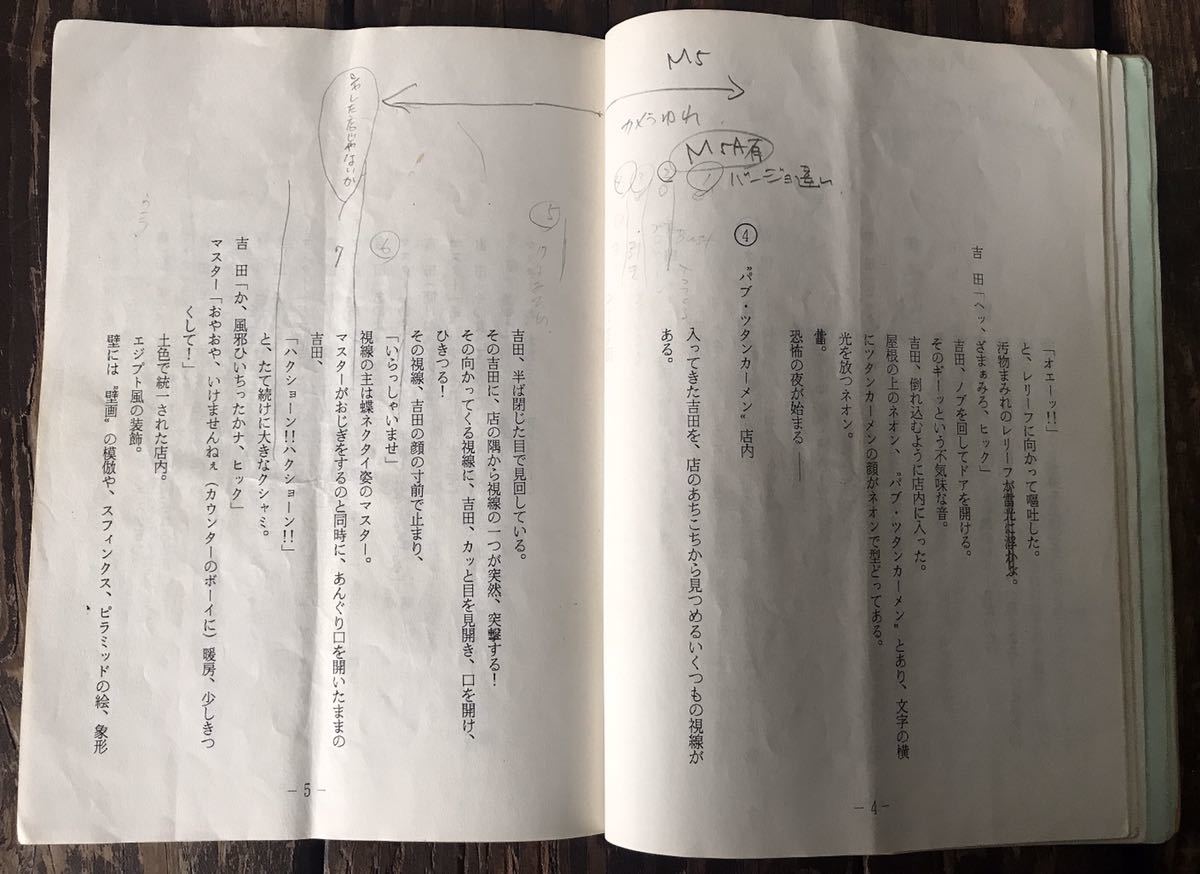 「オエーッ!!」
と、レリーフに向かって嘔吐した。
汚物まみれのレリーフが
吉　田「ヘッ、ざまぁみろ、ヒック」
吉田、ノブを回してドアを開ける。
そのギーッという不気味な音。
吉田、倒れ込むように店内に入った。
屋根の上のネオン、〝パブ・ツタンカーメン〟とあり、文字の横
にツタンカーメンの顔がネオンで型どってある。
光を放つネオン。
恐怖の夜が始まる――
④　〝パブ・ツタンカーメン〟店内
入ってきた吉田を、店のあちこちから見つめるいくつもの視線が
ある。
M5
カメラゆれ
M5A有
バージョ違い
－4－
吉田、半ば閉じた目で見回している。
その吉田に、店の隅から視線の一つが突然、突撃する!
その向かってくる視線に、吉田、カッと目を見開き、口を開け、
ひきつる!
その視線、吉田の顔の寸前で止まり、
「いらっしゃいませ」
視線の主は蝶ネクタイ姿のマスター。
マスターがおじぎをするのと同時に、あんぐり口を開いたままの
吉田、
「ハクショーン!!ハクショーン!!」
と、たて続けに大きなクシャミ。
吉　田「か、風邪ひいちったかナ、ヒック」
マスター「おやおや、いけませんねぇ（カウンターのボーイに）暖房、少しきつ
くして!」
土色で統一された店内。
エジプト風の装飾。
壁には〝壁画〟の模倣や、スフィンクス、ピラミッドの絵、象形
⑤
⑥
7
した店じゃないか
－5－